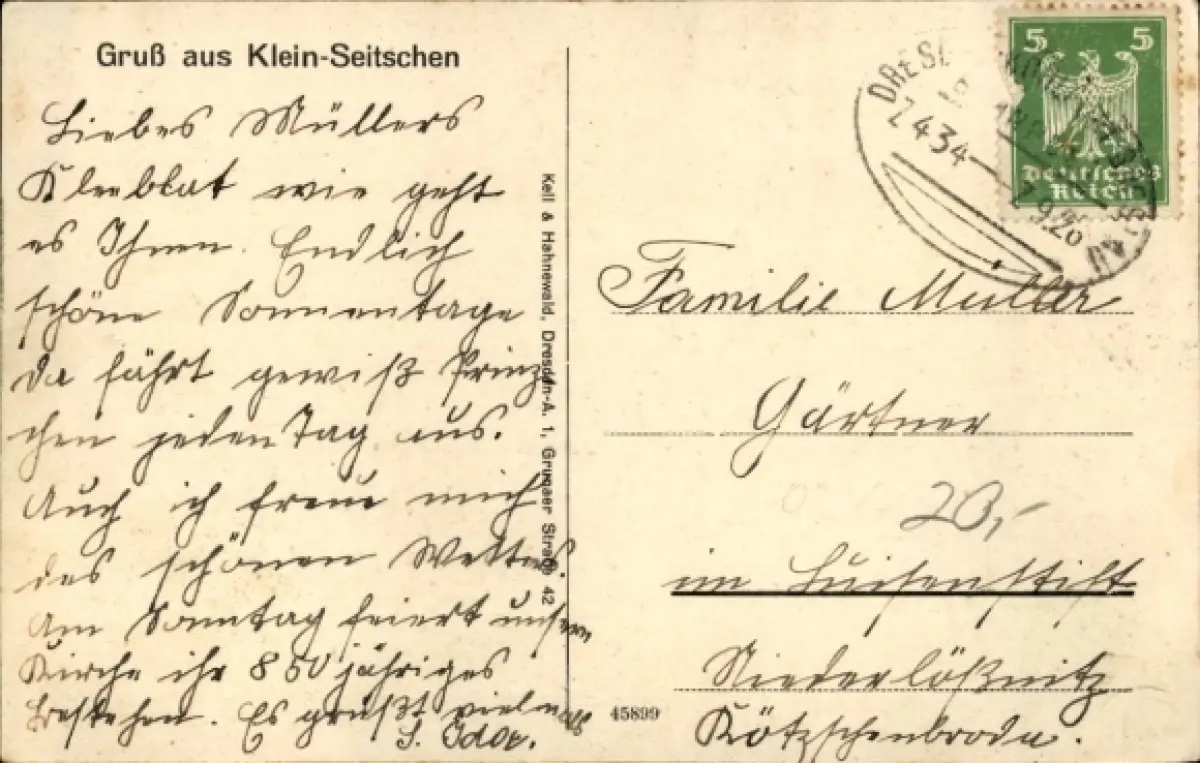 Gruß aus Klein-Seitschen
Liebes Müllers
Kleeblat wie geht
es Ihnen. Endlich
schöne Sonnentage
da fährt gewiß Prinz
chen jeden Tag aus.
Auch ich freue mich
des schönen Wetters.
Am Sonntag feiert unsere
Kirche ihr 850 jähriges
Bestehen. Es grüßt vielmals
Kell & Hahnewald, Dresden-A. 1, Grunaer Straße 42
45899
5 5
Deutsches
Reich
Z 434
Familie Müller
Gärtner
20,-
im Luisenstift
Niederlößnitz
Kötzschenbroda.